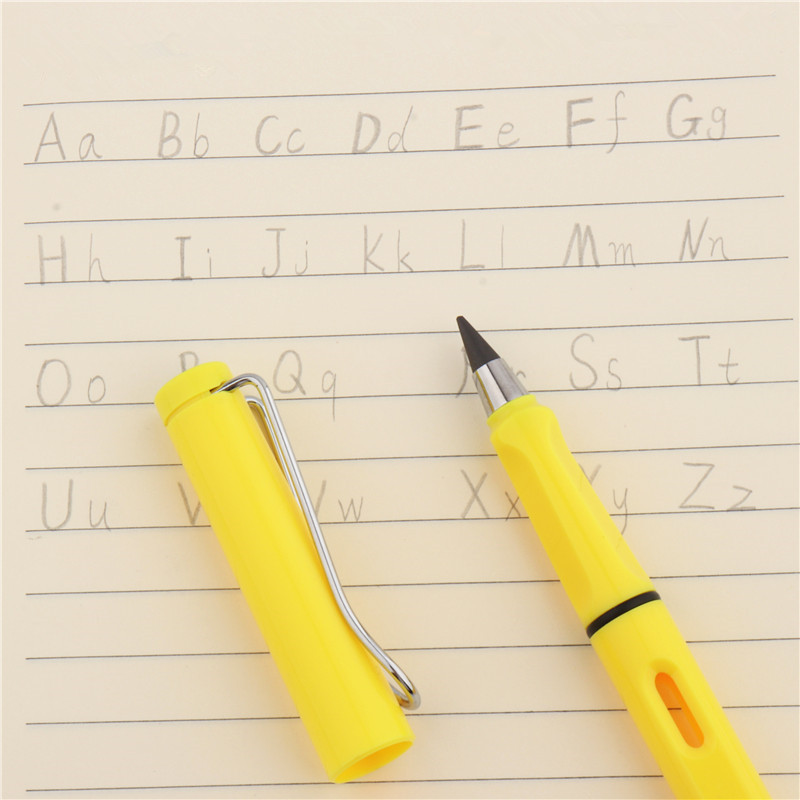 Aa Bb Cc Dd Ee Ff Gg
Hh Ii Jj Kk Ll Mm Nn
Oo Qq Ss Tt
Uu Xx Zz